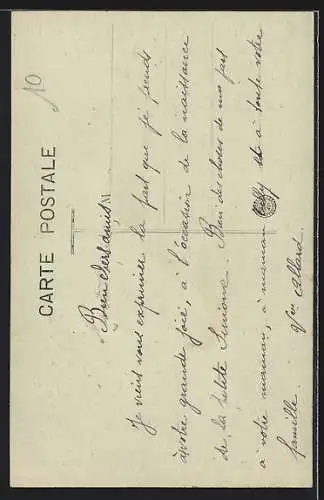 10
CARTE POSTALE
Bien chers amis
Je viens vous exprimer la part que je prends
à votre grande joie, à l'occasion de la naissance
de la petite Simone. Bien des choses de ma part
à votre maman, à maman et à toute votre
famille. Vve Allard